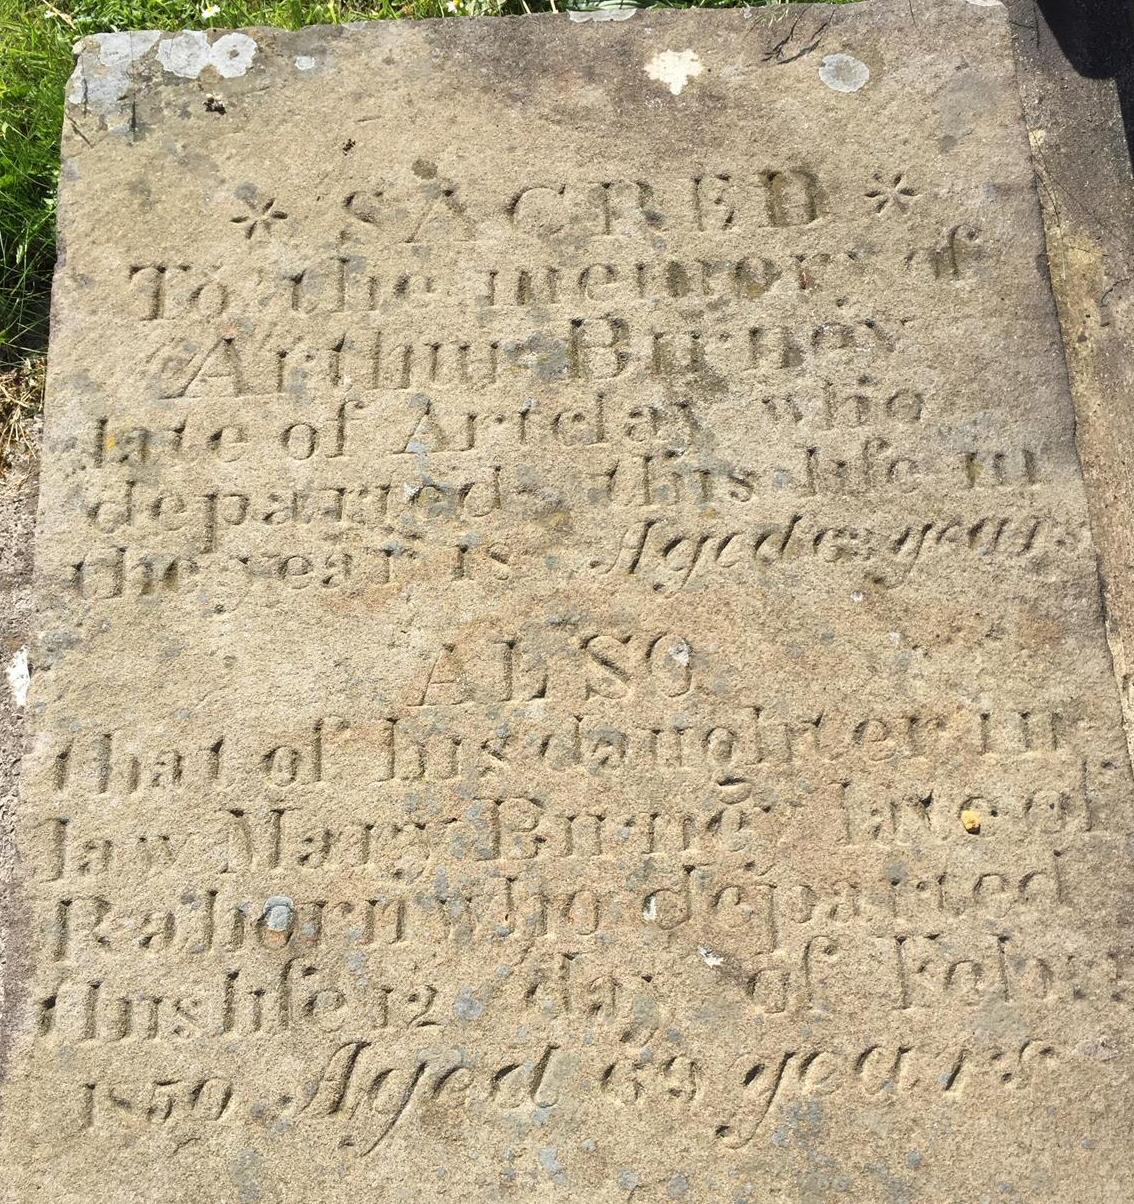 * SACRED *
To the memory of
Arthur Birney
late of Artclay who
departed this life in
the year 18 Aged 63 years
ALSO
that of his daughter in
law Mary Birney late of
Rahorn who departed
this life 12 day of Febr.
1850 Aged years